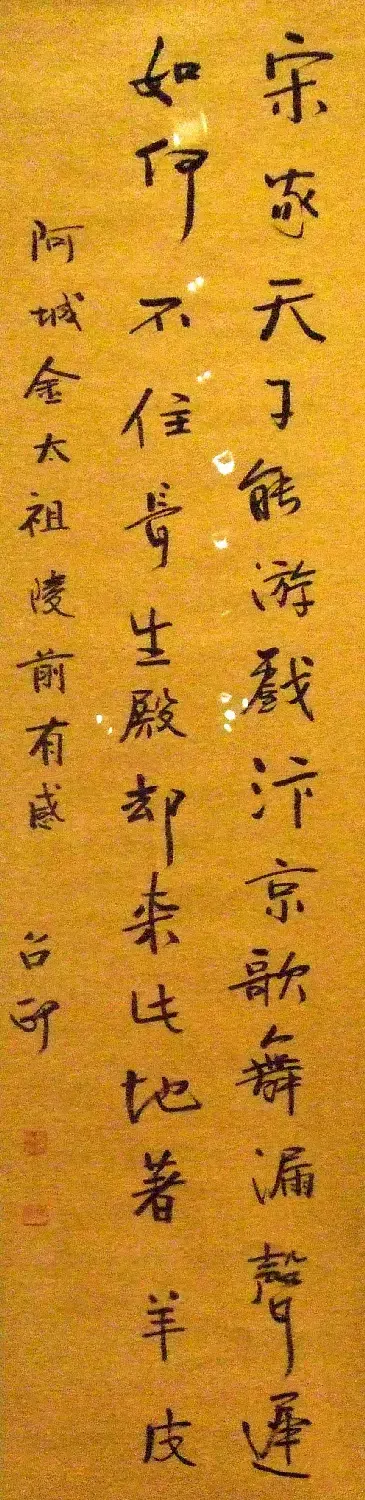 宋家天子能游戲汴京歌舞漏聲遲
如何不住長生殿却来此地著羊皮
阿城金太祖陵前有感 召邱